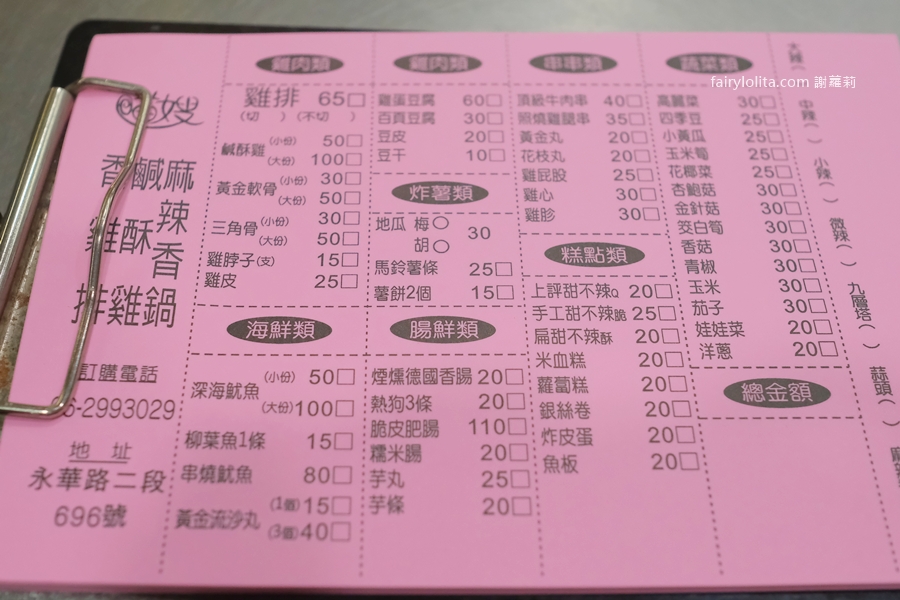 fairylolita.com 謝蘿莉
嫂
香鹹麻
雞酥辣
香
排雞鍋
訂購電話
6-2993029
地 址
永華路二段
696號
雞肉類
雞排 65□
(切 ) (不切 )
鹹酥雞 (小份) 50□
(大份) 100□
黃金軟骨 (小份) 30□
(大份) 50□
三角骨 (小份) 30□
(大份) 50□
雞脖子(支) 15□
雞皮 25□
海鮮類
深海魷魚 (小份) 50□
(大份) 100□
柳葉魚1條 15□
串燒魷魚 80□
黃金流沙丸 (1個) 15□
(3個) 40□
雞肉類
雞蛋豆腐 60□
百頁豆腐 30□
豆皮 20□
豆干 10□
炸薯類
地瓜 梅○ 30
胡○
馬鈴薯條 25□
薯餅2個 15□
腸鮮類
煙燻德國香腸 20□
熱狗3條 20□
脆皮肥腸 110□
糯米腸 20□
芋丸 25□
芋條 20□
串串類
頂級牛肉串 40□
照燒雞腿串 35□
黃金丸 20□
花枝丸 20□
雞屁股 25□
雞心 30□
雞胗 30□
糕點類
上評甜不辣Q 20□
手工甜不辣脆 25□
扁甜不辣酥 20□
米血糕 20□
蘿蔔糕 20□
銀絲卷 20□
炸皮蛋 20□
魚板 20□
蔬菜類
高麗菜 30□
四季豆 25□
小黃瓜 25□
玉米筍 25□
花椰菜 25□
杏鮑菇 30□
金針菇 30□
筊白筍 30□
香菇 30□
青椒 30□
玉米 30□
茄子 30□
娃娃菜 20□
洋蔥 20□
總金額
大辣( )
中辣( )
小辣( )
微辣( )
九層塔( )
蒜頭( )